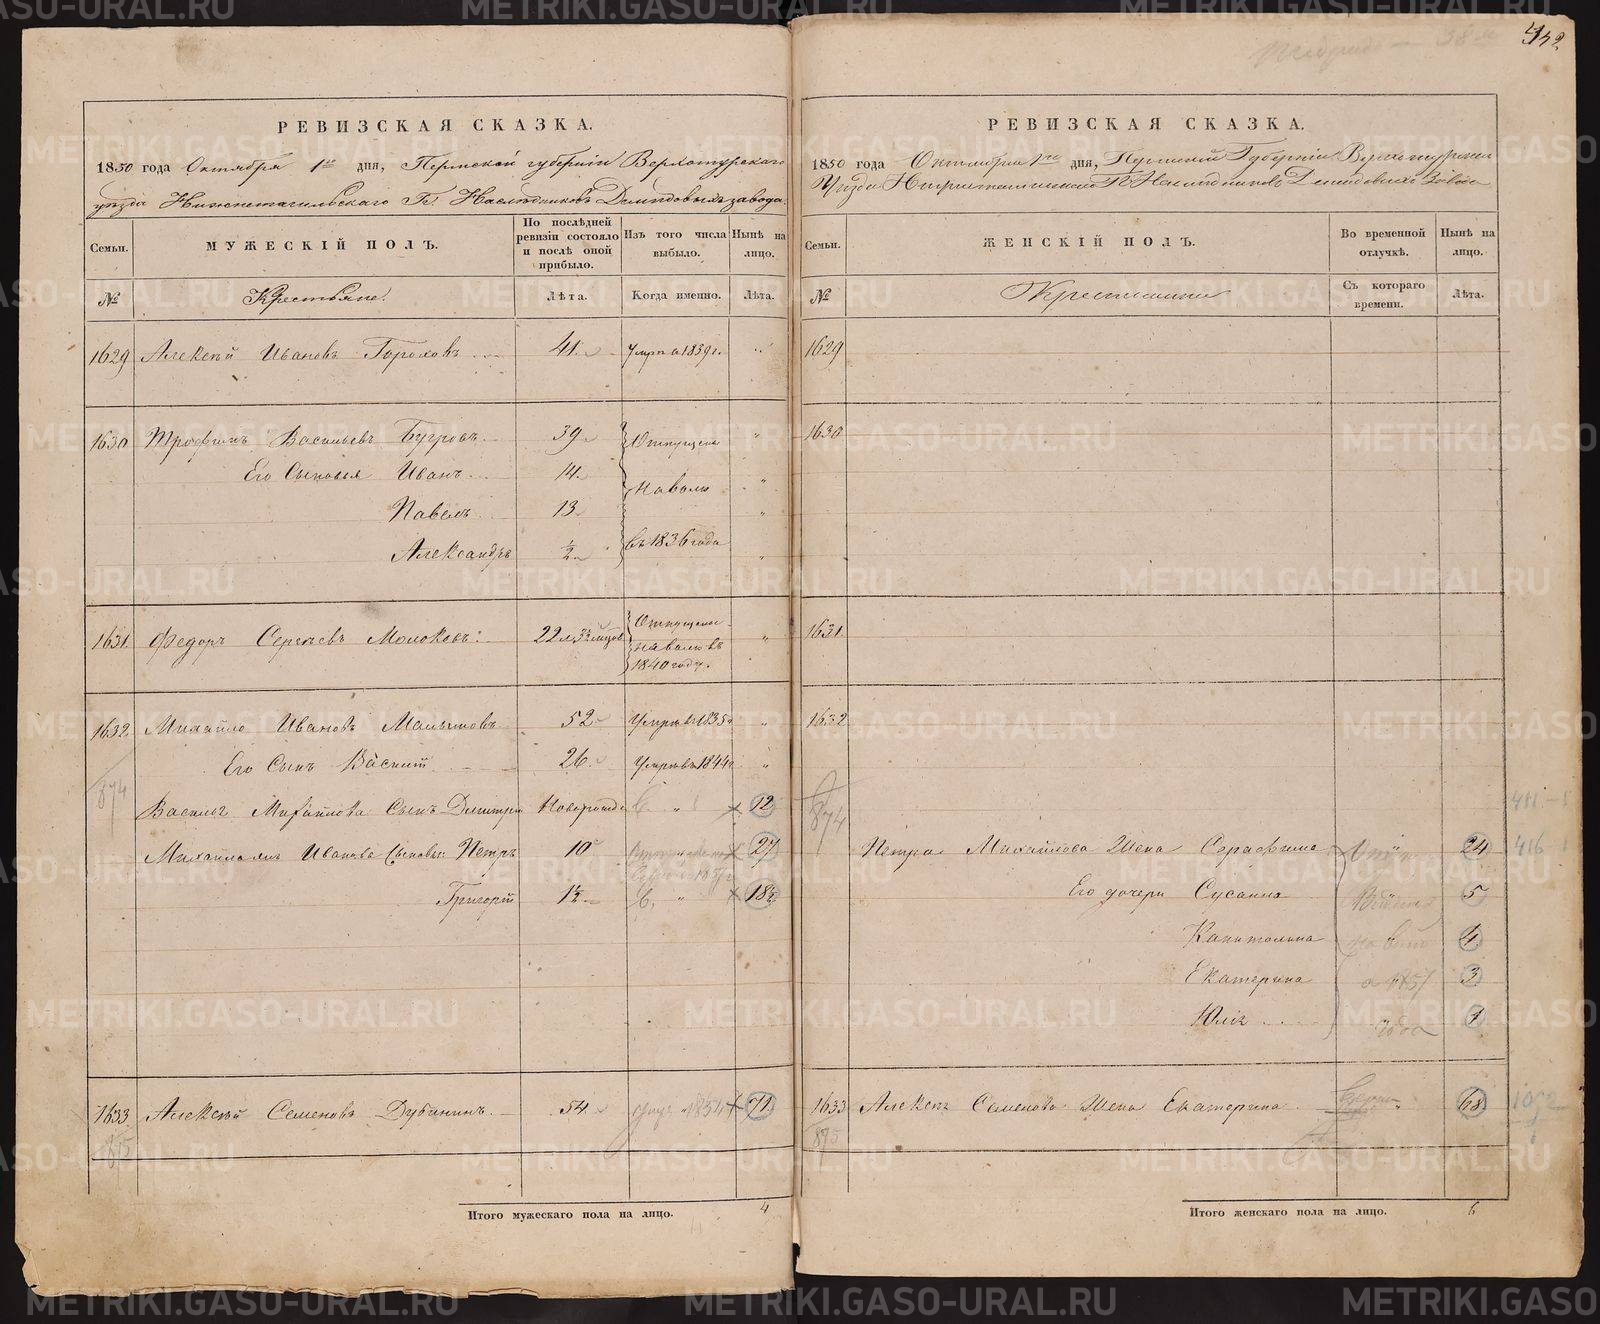 142
РЕВИЗСКАЯ СКАЗКА.
1850 года Октября 1го дня, Пермской губернiи Верхотурскаго
уѣзда Нижнетагильскаго Гг. Наслѣдниковъ Демидовыхъ завода.
Семьи.
МУЖЕСКIЙ ПОЛЪ.
По послѣдней ревизiи состояло и послѣ оной прибыло.
Изъ того числа выбыло.
Нынѣ на лицо.
№
Крестьяне.
Лѣта.
Когда именно.
Лѣта.
1629 Алексѣй Ивановъ Гороховъ 41 Умре в 1839 г. "
1630 Трофимъ Васильевъ Бугровъ 39 Отпущены "
Его Сыновья Иванъ 14 на волю "
Павелъ 13 "
Александръ ½ въ 1836 года "
1631 Федоръ Сергѣевъ Молоковъ 22 Отпущенъ на волю въ 1840 году. "
1632 Михайло Ивановъ Малышовъ 52 Умре в 1835 "
Его Сынъ Васил1й 26 Умре в 1844 "
874
Василья Михайлова Сынъ Дмитрiй Новорожд " 12
Михайла Иванова Сыновья Петръ 10 " 27
Григорiй 1½ " 18½
1633 Алексѣй Семеновъ Дубининъ 54 1854 71
875
Итого мужескаго пола на лицо. 4
РЕВИЗСКАЯ СКАЗКА.
1850 года Октября 1го дня, Пермской Губернiи Верхотурскаго
Уѣзда Нижнетагильскаго Гг. Наслѣдниковъ Демидовыхъ Завода
Семьи.
ЖЕНСКIЙ ПОЛЪ.
Во временной отлучкѣ.
Нынѣ на лицо.
№
Крестьянки
Съ котораго времени.
Лѣта.
1629
1630
1631
1632
874
Петра Михайлова Жена Серафима " 24
416
Его дочери Сусанна 5
Капитолина 4
Екатерина 3
Юлiя 1
1633 Алексѣя Семенова Жена Екатерина " 68
875
Итого женскаго пола на лицо. 6
METRIKI.GASO-URAL.RU